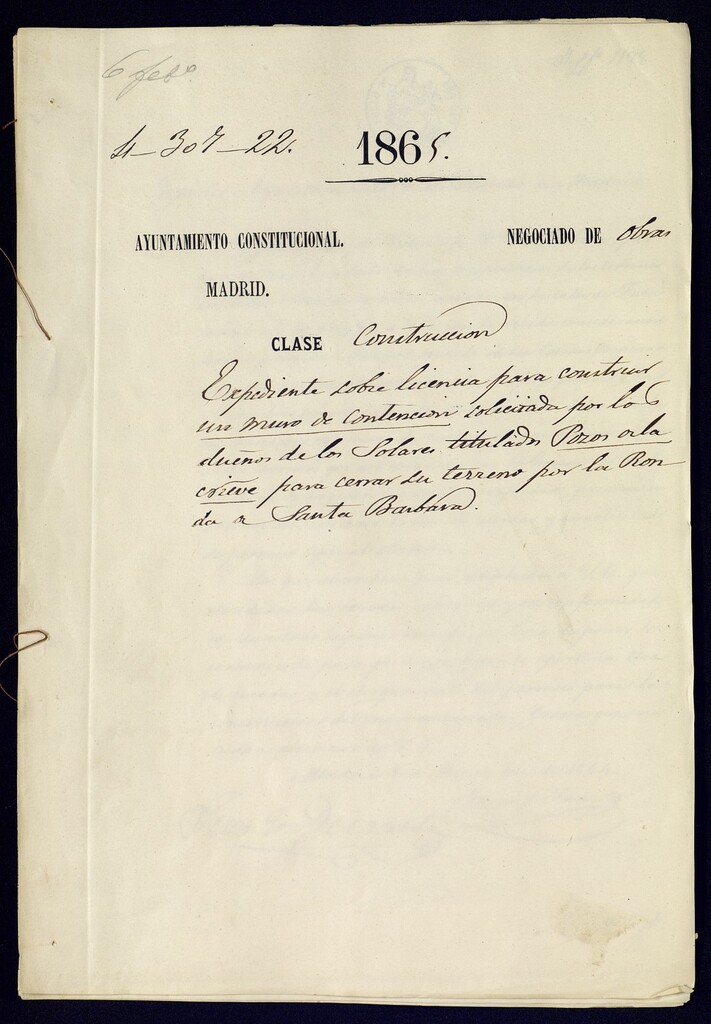 6 feb.º
4-307-22.
1865.
AYUNTAMIENTO CONSTITUCIONAL.
NEGOCIADO DE Obras
MADRID.
CLASE Construccion
Expediente sobre licencia para construir
un muro de contencion solicitada por los
dueños de los Solares titulados Pozos de la
nieve para cerrar su terreno por la Ron
da de Santa Barbara.